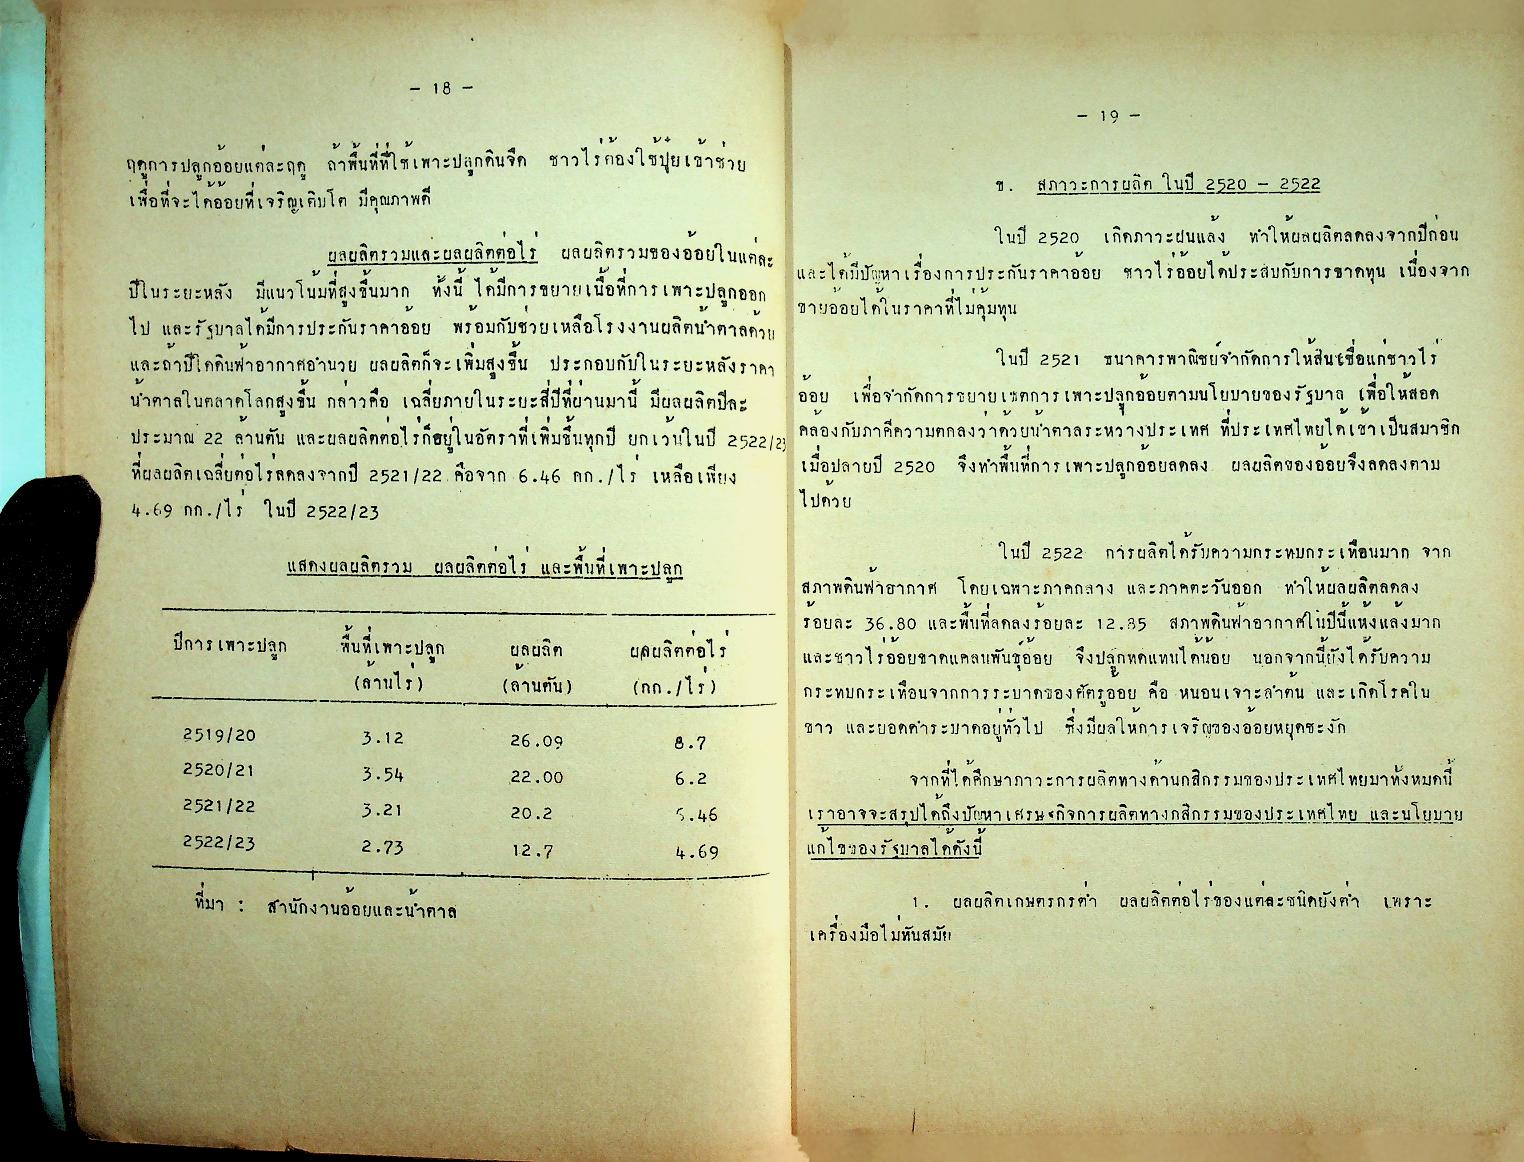 - 18 -
ฤดูการปลูกอ้อยแต่ละฤดู ถ้าพื้นที่ที่ใช้เพาะปลูกดินจืด ชาวไร่ต้องใช้ปุ๋ยเข้าช่วย
เพื่อที่จะได้อ้อยที่เจริญเติบโต มีคุณภาพดี
ผลผลิตรวมและผลผลิตต่อไร่ ผลผลิตรวมของอ้อยในแต่ละ
ปีในระยะหลัง มีแนวโน้มที่สูงขึ้นมาก ทั้งนี้ ได้มีการขยายเนื้อที่การเพาะปลูกออก
ไป และรัฐบาลได้มีการประกันราคาอ้อย พร้อมกับช่วยเหลือโรงงานผลิตน้ำตาลด้วย
และถ้าปีใดดินฟ้าอากาศอำนวย ผลผลิตก็จะเพิ่มสูงขึ้น ประกอบกับในระยะหลังราคา
น้ำตาลในตลาดโลกสูงขึ้น กล่าวคือ เฉลี่ยภายในระยะสี่ปีที่ผ่านมานี้ มีผลผลิตปีละ
ประมาณ 22 ล้านตัน และผลผลิตต่อไร่ก็อยู่ในอัตราที่เพิ่มขึ้นทุกปี ยกเว้นในปี 2522/23
ที่ผลผลิตเฉลี่ยต่อไร่ลดลงจากปี 2521/22 คือจาก 6.46 กก./ไร่ เหลือเพียง
4.69 กก./ไร่ ในปี 2522/23
แสดงผลผลิตรวม ผลผลิตต่อไร่ และพื้นที่เพาะปลูก
ปีการเพาะปลูก พื้นที่เพาะปลูก ผลผลิต ผลผลิตต่อไร่
(ล้านไร่) (ล้านตัน) (กก./ไร่)
2519/20 3.12 26.09 8.7
2520/21 3.54 22.00 6.2
2521/22 3.21 20.2 6.46
2522/23 2.73 12.7 4.69
ที่มา : สำนักงานอ้อยและน้ำตาล
- 19 -
ข. สภาวะการผลิต ในปี 2520 - 2522
ในปี 2520 เกิดภาวะฝนแล้ง ทำให้ผลผลิตลดลงจากปีก่อน
และได้มีปัญหาเรื่องการประกันราคาอ้อย ชาวไร่อ้อยได้ประสบกับการขาดทุน เนื่องจาก
ขายอ้อยได้ในราคาที่ไม่คุ้มทุน
ในปี 2521 ธนาคารพาณิชย์จำกัดการให้สินเชื่อแก่ชาวไร่
อ้อย เพื่อจำกัดการขยายเขตการเพาะปลูกอ้อยตามนโยบายของรัฐบาล เพื่อให้สอด
คล้องกับภาคีความตกลงว่าด้วยน้ำตาลระหว่างประเทศ ที่ประเทศไทยได้เข้าเป็นสมาชิก
เมื่อปลายปี 2520 จึงทำพื้นที่การเพาะปลูกอ้อยลดลง ผลผลิตของอ้อยจึงลดลงตาม
ไปด้วย
ในปี 2522 การผลิตได้รับความกระทบกระเทือนมาก จาก
สภาพดินฟ้าอากาศ โดยเฉพาะภาคกลาง และภาคตะวันออก ทำให้ผลผลิตลดลง
ร้อยละ 36.80 และพื้นที่ลดลงร้อยละ 12.85 สภาพดินฟ้าอากาศในปีนี้แห้งแล้งมาก
และชาวไร่อ้อยขาดแคลนพันธุ์อ้อย จึงปลูกทดแทนได้น้อย นอกจากนี้ยังได้รับความ
กระทบกระเทือนจากการระบาดของศัตรูอ้อย คือ หนอนเจาะลำต้น และเกิดโรคใบ
ขาว และยอดดำระบาดอยู่ทั่วไป ซึ่งมีผลให้การเจริญของอ้อยหยุดชะงัก
จากที่ได้ศึกษาภาวะการผลิตทางด้านกสิกรรมของประเทศไทยมาทั้งหมดนี้
เราอาจจะสรุปได้ถึงปัญหาเศรษฐกิจการผลิตทางกสิกรรมของประเทศไทย และนโยบาย
แก้ไขของรัฐบาลได้ดังนี้
1. ผลผลิตเกษตรกรต่ำ ผลผลิตต่อไร่ของแต่ละชนิดยังต่ำ เพราะ
เครื่องมือไม่ทันสมัย